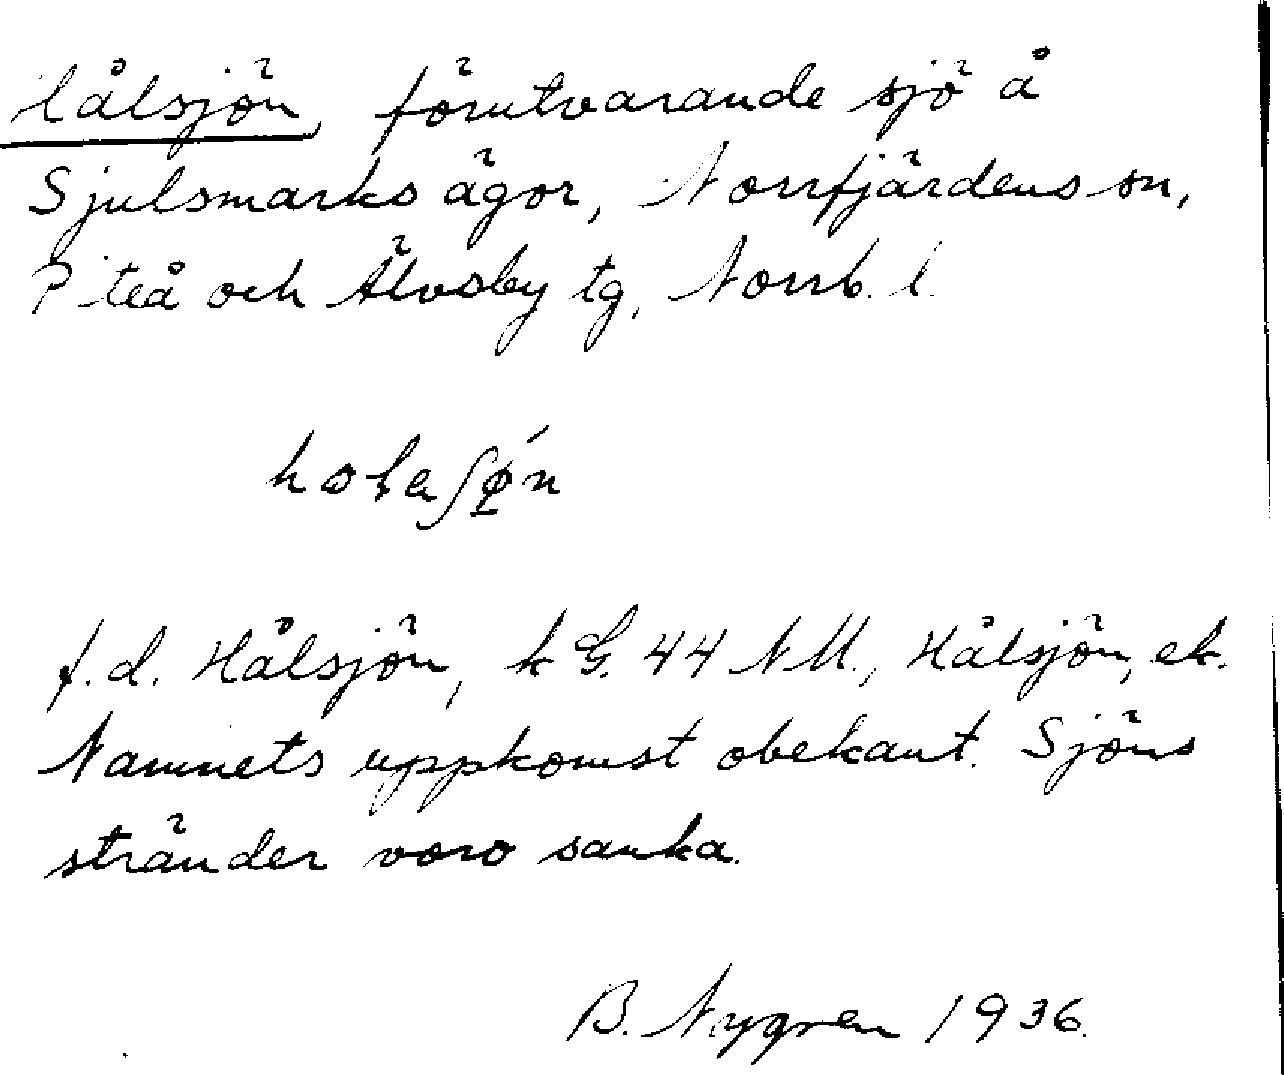 Hålsjön, förutvarande sjö å
Sjulsmarks ägor, Norrfjärdens sn,
Piteå och Älvsby tg, Norrb. l.
f.d. Hålsjön, k G. 44 NM., Hålsjön, ek.
Namnets uppkomst obekant. Sjöns
stränder voro sanka.
B. Nygren 1936.